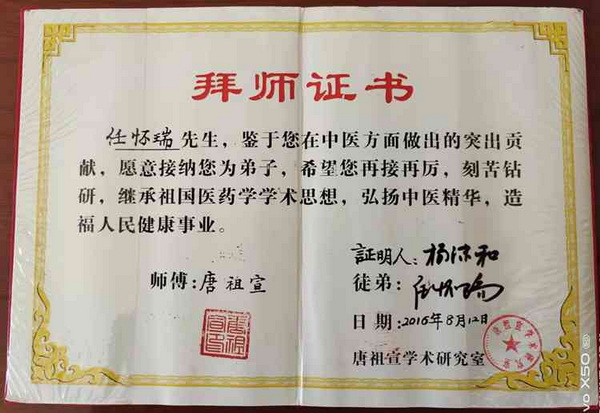 拜师证书
任怀瑞先生，鉴于您在中医方面做出的突出贡
献，愿意接纳您为弟子，希望您再接再厉，刻苦钻
研，继承祖国医药学学术思想，弘扬中医精华，造
福人民健康事业。
証明人：杨
师傅：唐祖宣
徒弟：
日期：2016年8月12日
唐祖宣学术研究室
vo X50 5G